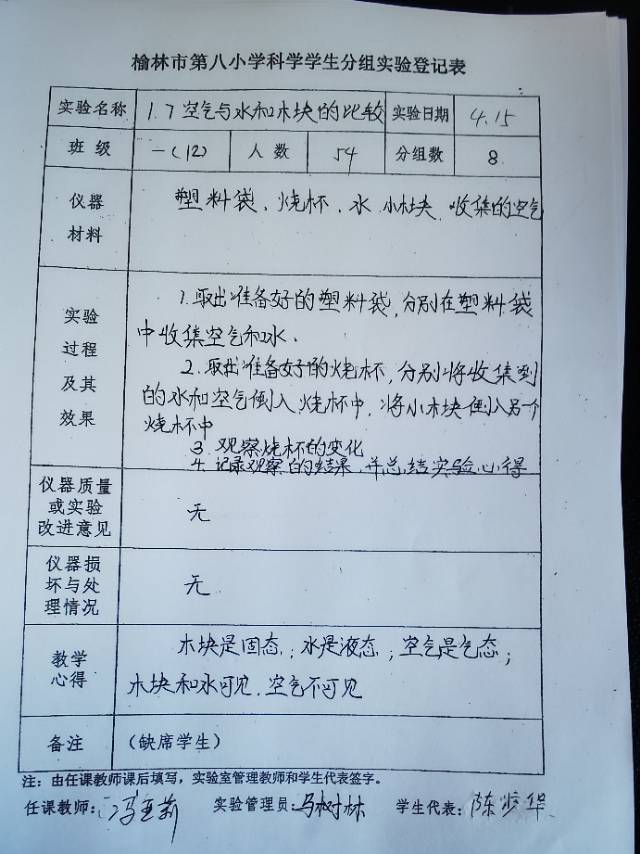 榆林市第八小学科学学生分组实验登记表
实验名称 1.7空气与水和木块的比较 实验日期 4.15
班级 一(12) 人数 54 分组数 8
仪器材料 塑料袋、烧杯、水、小木块、收集的空气
实验过程及其效果
1.取出准备好的塑料袋,分别在塑料袋
中收集空气和水.
2.取出准备好的烧杯,分别将收集到
的水和空气倒入烧杯中,将小木块倒入另一个
烧杯中
3.观察烧杯的变化
4.记录观察的结果,并总结实验心得
仪器质量或实验改进意见 无
仪器损坏与处理情况 无
教学心得
木块是固态;水是液态;空气是气态;
木块和水可见.空气不可见
备注 (缺席学生)
注:由任课教师课后填写,实验室管理教师和学生代表签字。
任课教师:冯亚莉 实验管理员:马树林 学生代表:陈步华